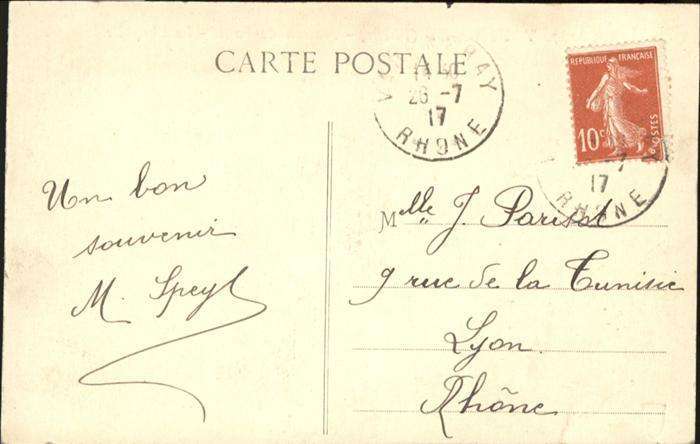 CARTE POSTALE
26-7
17
RHONE
REPUBLIQUE FRANÇAISE
10c
POSTES
17
RHONE
Un bon
souvenir
M. Speyl
Mlle J. Parisot
9 rue de la Tunisie
Lyon
Rhône